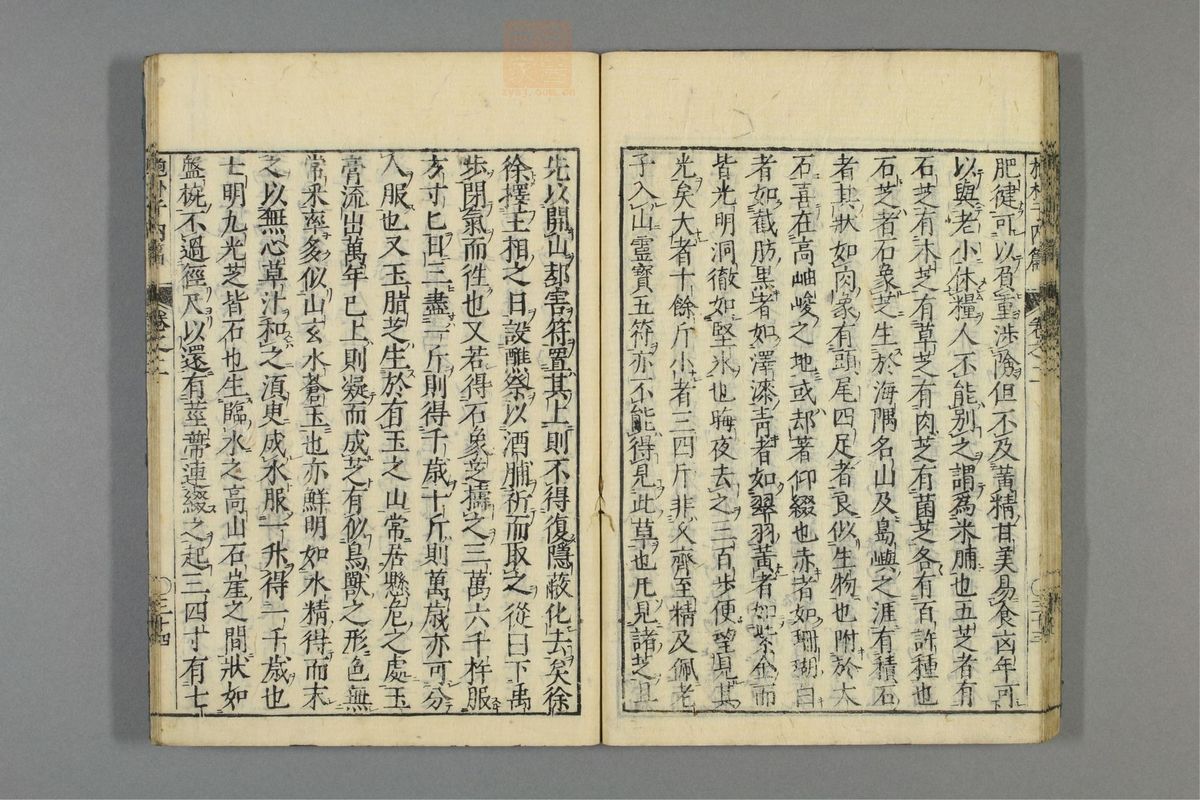 肥健可以負重涉險但不及黃精甘美易食凶年可
以與老小休糧人不能別之謂爲米脯也五芝者有
石芝有木芝有草芝有肉芝有菌芝各有百許種也
石芝者石象芝生於海隅名山及島嶼之涯有積石
者其狀如肉象有頭尾四足者良似生物也附於大
石喜在高岫峻之地或却著仰綴也赤者如珊瑚白
者如截肪黒者如澤漆青者如翠羽黃者如紫金而
皆光明洞徹如堅氷也晦夜去之三百步便望見其
光矣大者十餘斤小者三四斤非乆齊至精及佩老
子入山靈寶五符亦不能得見此草也凡見諸芝且
先以開山却害符置其上則不得復隱蔽化去矣徐
徐擇王相之日設醮祭以酒脯祈而取之從日下禹
步閉氣而徃也又若得石象芝擣之三萬六千杵服
方寸匕日三盡一斤則得千歳十斤則萬歳亦可分
人服也又玉脂芝生於有玉之山常居懸危之處玉
膏流出萬年已上則凝而成芝有似鳥獸之形色無
常釆率多似山玄水蒼玉也亦鮮明如水精得而末
之以無心草汁和之湏臾成水服一升得一千歳也
七明九光芝皆石也生臨水之高山石崖之間狀如
盤椀不過徑尺以還有莖蔕連綴之起三四寸有七
抱朴子内篇
卷之二
三十四